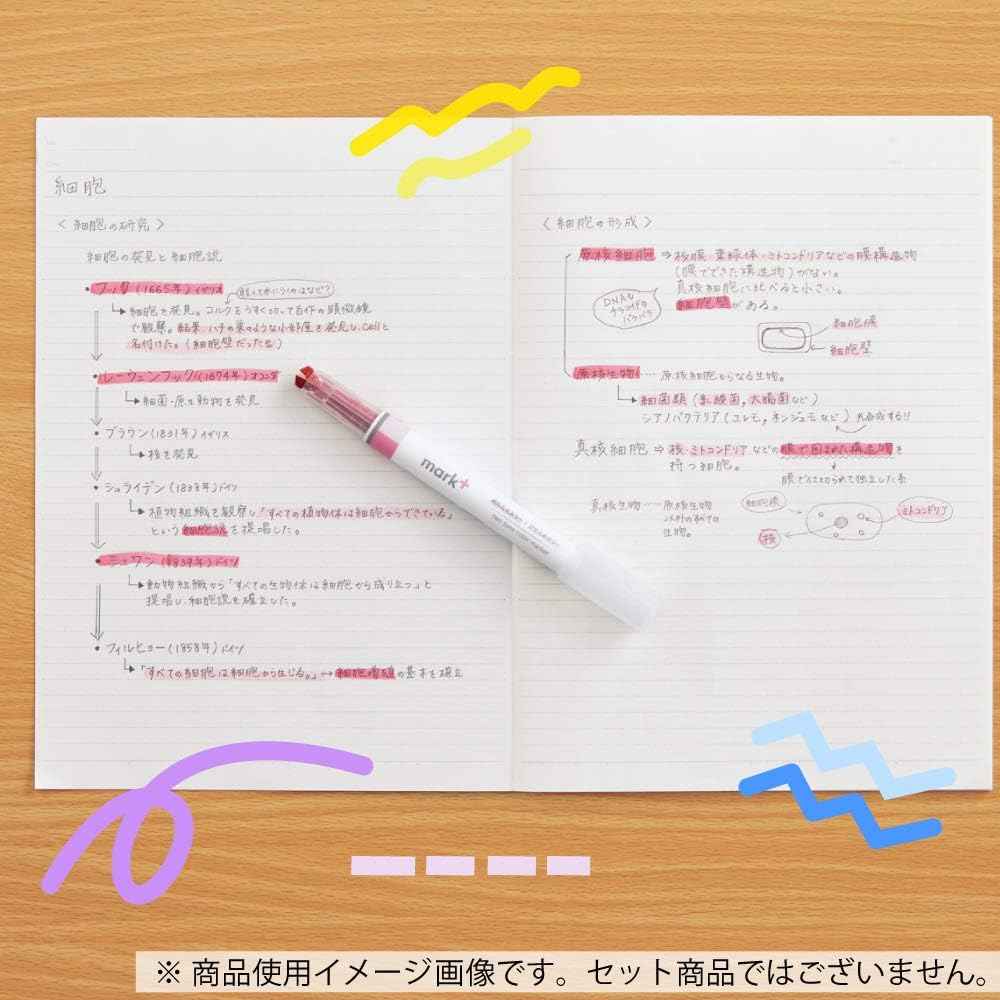 細胞
〈細胞の研究〉
細胞の発見と細胞説
・フック(1665年)イギリス
細胞を発見。コルクをうすく切って自作の顕微鏡
で観察。結果、ハチの巣のような小部屋を発見し、cellと
名付けた。(細胞壁だった)
・レーウェンフック(1674年)オランダ
細菌・原生動物を発見
・ブラウン(1831年)イギリス
核を発見
・シュライデン(1838年)ドイツ
植物組織を観察し「すべての植物体は細胞からできている」
という細胞説を提唱した。
・シュワン(1839年)ドイツ
動物組織から「すべての生物体は細胞から成り立つ」と
提唱し、細胞説を確立した。
・フィルヒョー(1858年)ドイツ
「すべての細胞は細胞から生じる。」↔細胞増殖の基本を確立
〈細胞の形成〉
原核細胞⇒核膜・葉緑体・ミトコンドリアなどの膜構造物
(膜でできた構造物)がない。
真核細胞に比べると小さい。
細胞壁がある。
DNAも
細胞膜
細胞壁
原核生物…原核細胞からなる生物。
細菌類(乳酸菌,大腸菌など)
シアノバクテリア(ユレモ,ネンジュモなど)
真核細胞⇒核・ミトコンドリアなどの膜で囲まれた構造物を
持つ細胞。
真核生物…原核生物
以外のすべての
生物。
細胞膜
ミトコンドリア
核
mark+
※ 商品使用イメージ画像です。セット商品ではございません。